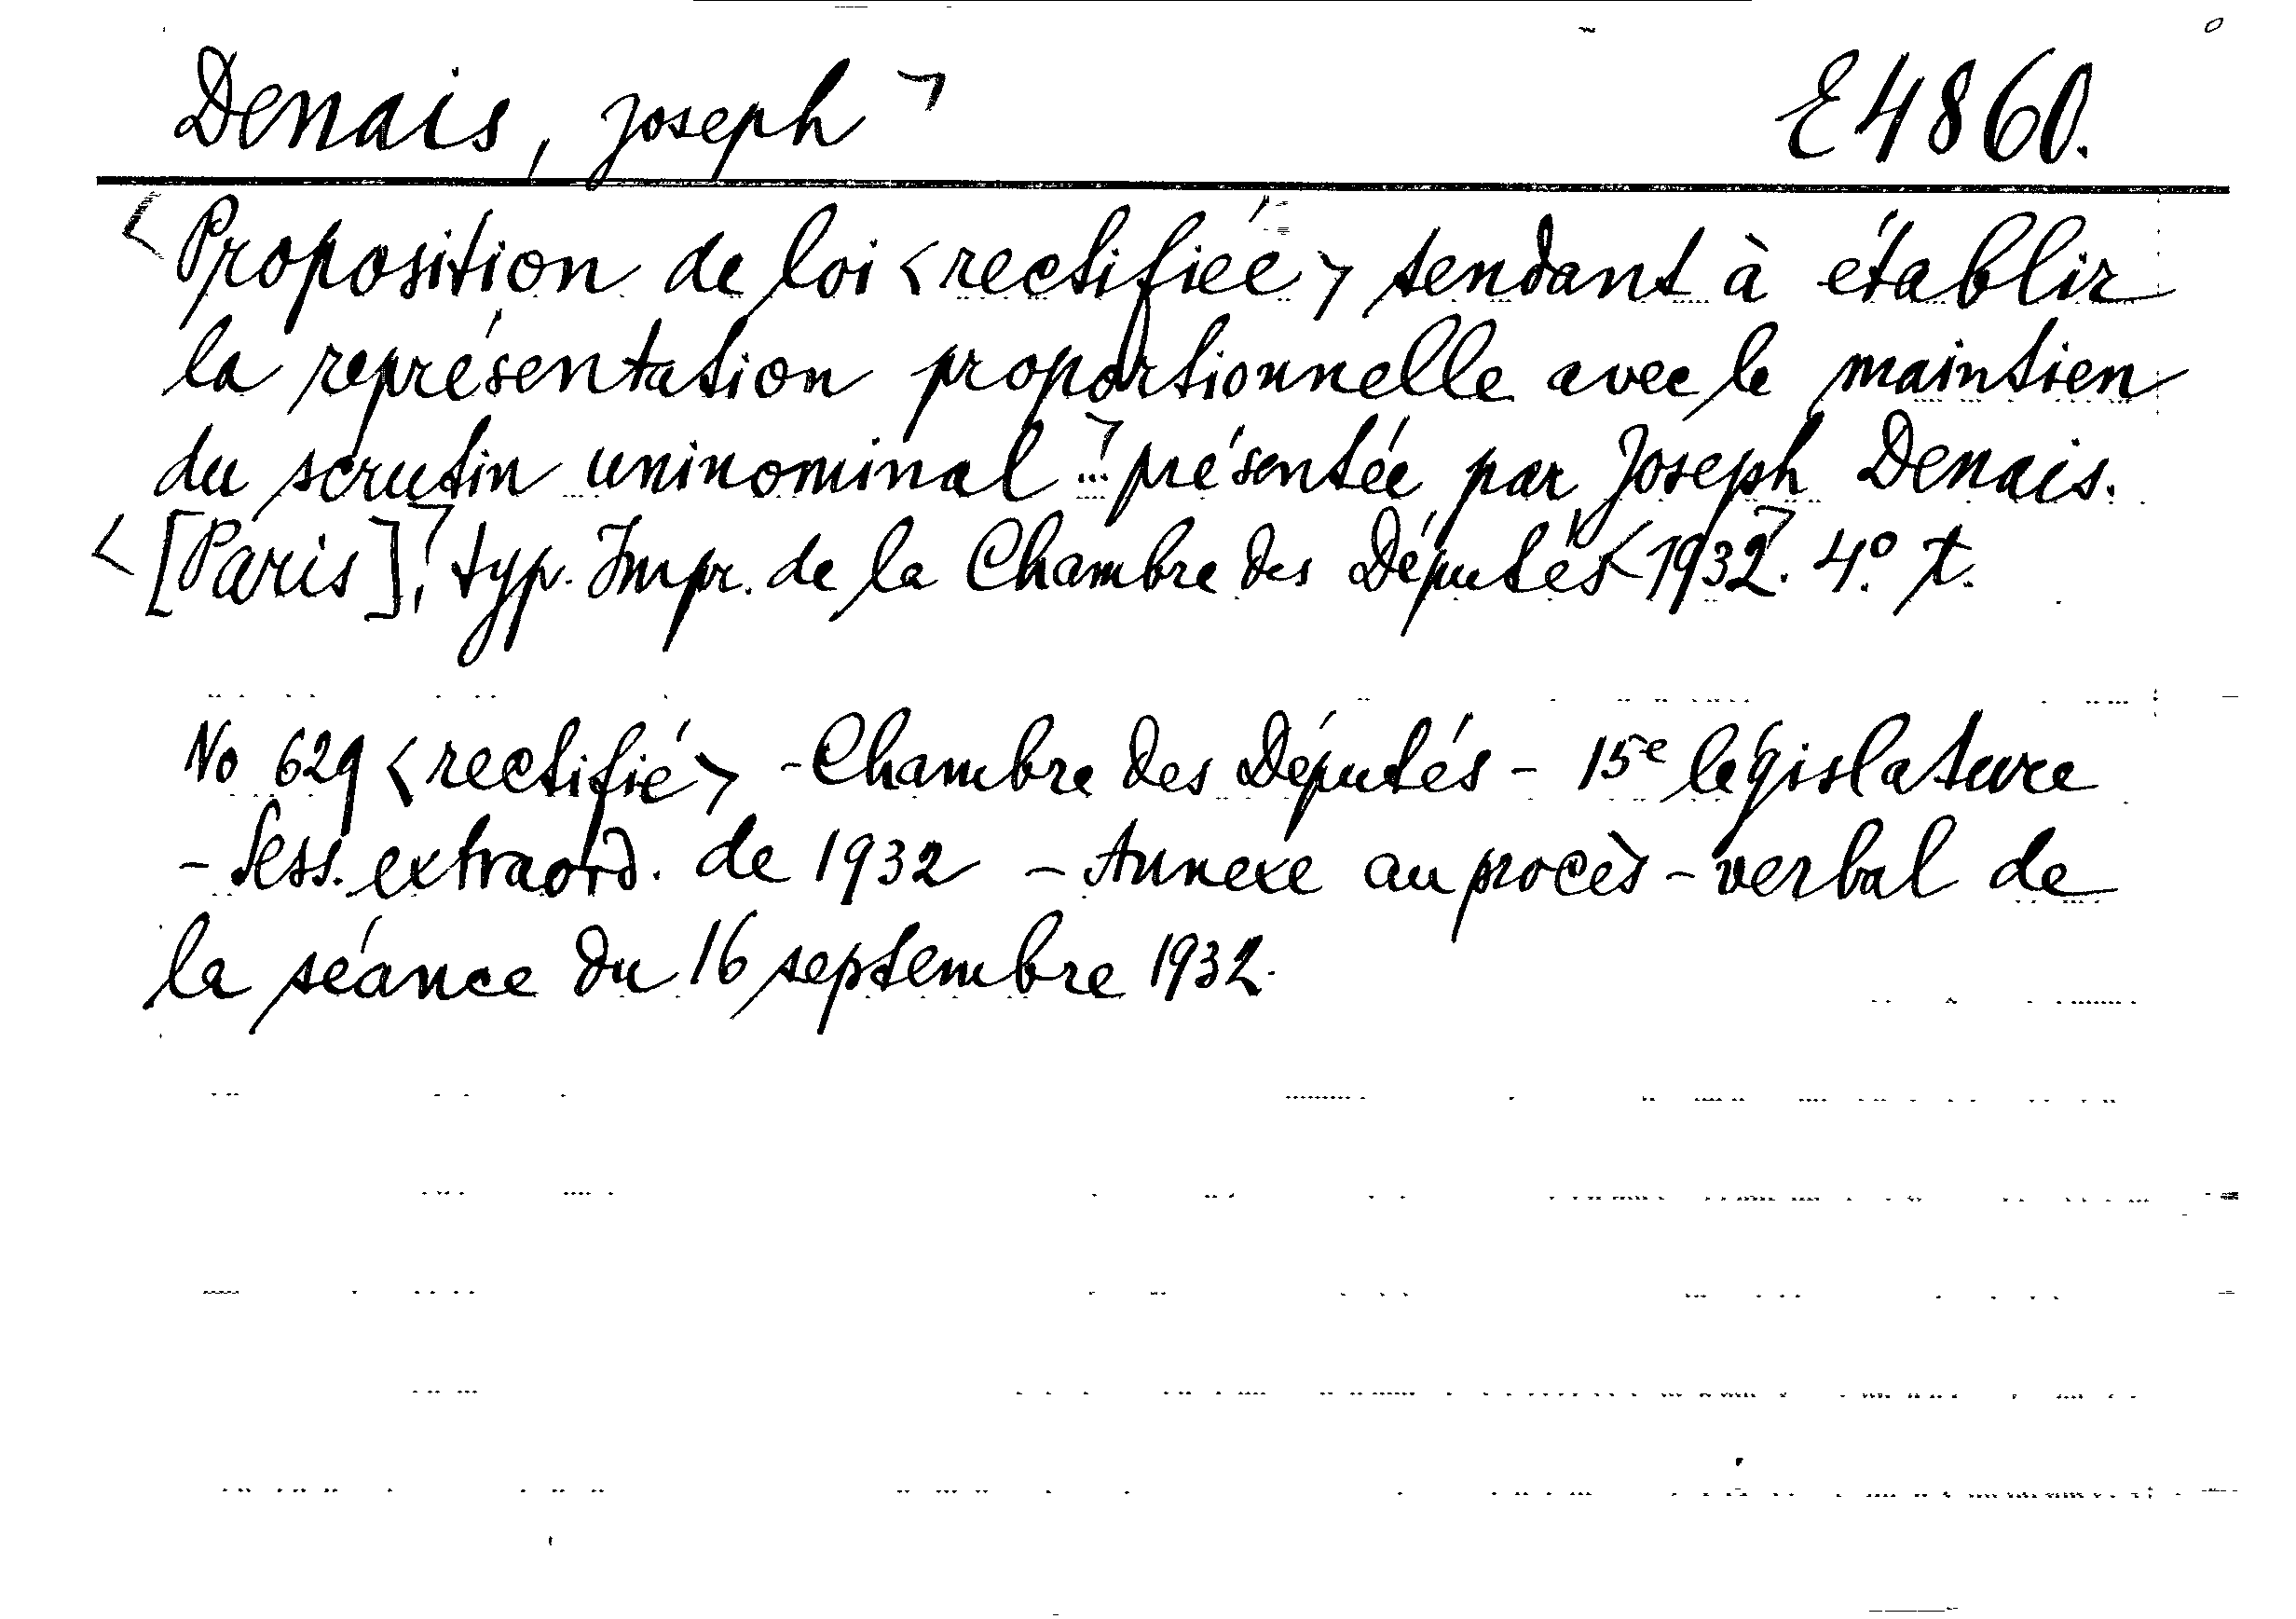 Denais, Joseph > E 4860.
<Proposition de loi <rectifiée> tendant à établir
la représentation proportionnelle avec le maintien
du scrutin uninominal> ... présentée par Joseph Denais.
<[Paris],> typ. Impr. de la Chambre des Députés <1932>. 4.° t.
No 629 <rectifié> - Chambre des Députés - 15e législature
- Sess. extraord. de 1932 - Annexe au procès-verbal de
la séance du 16 septembre 1932.